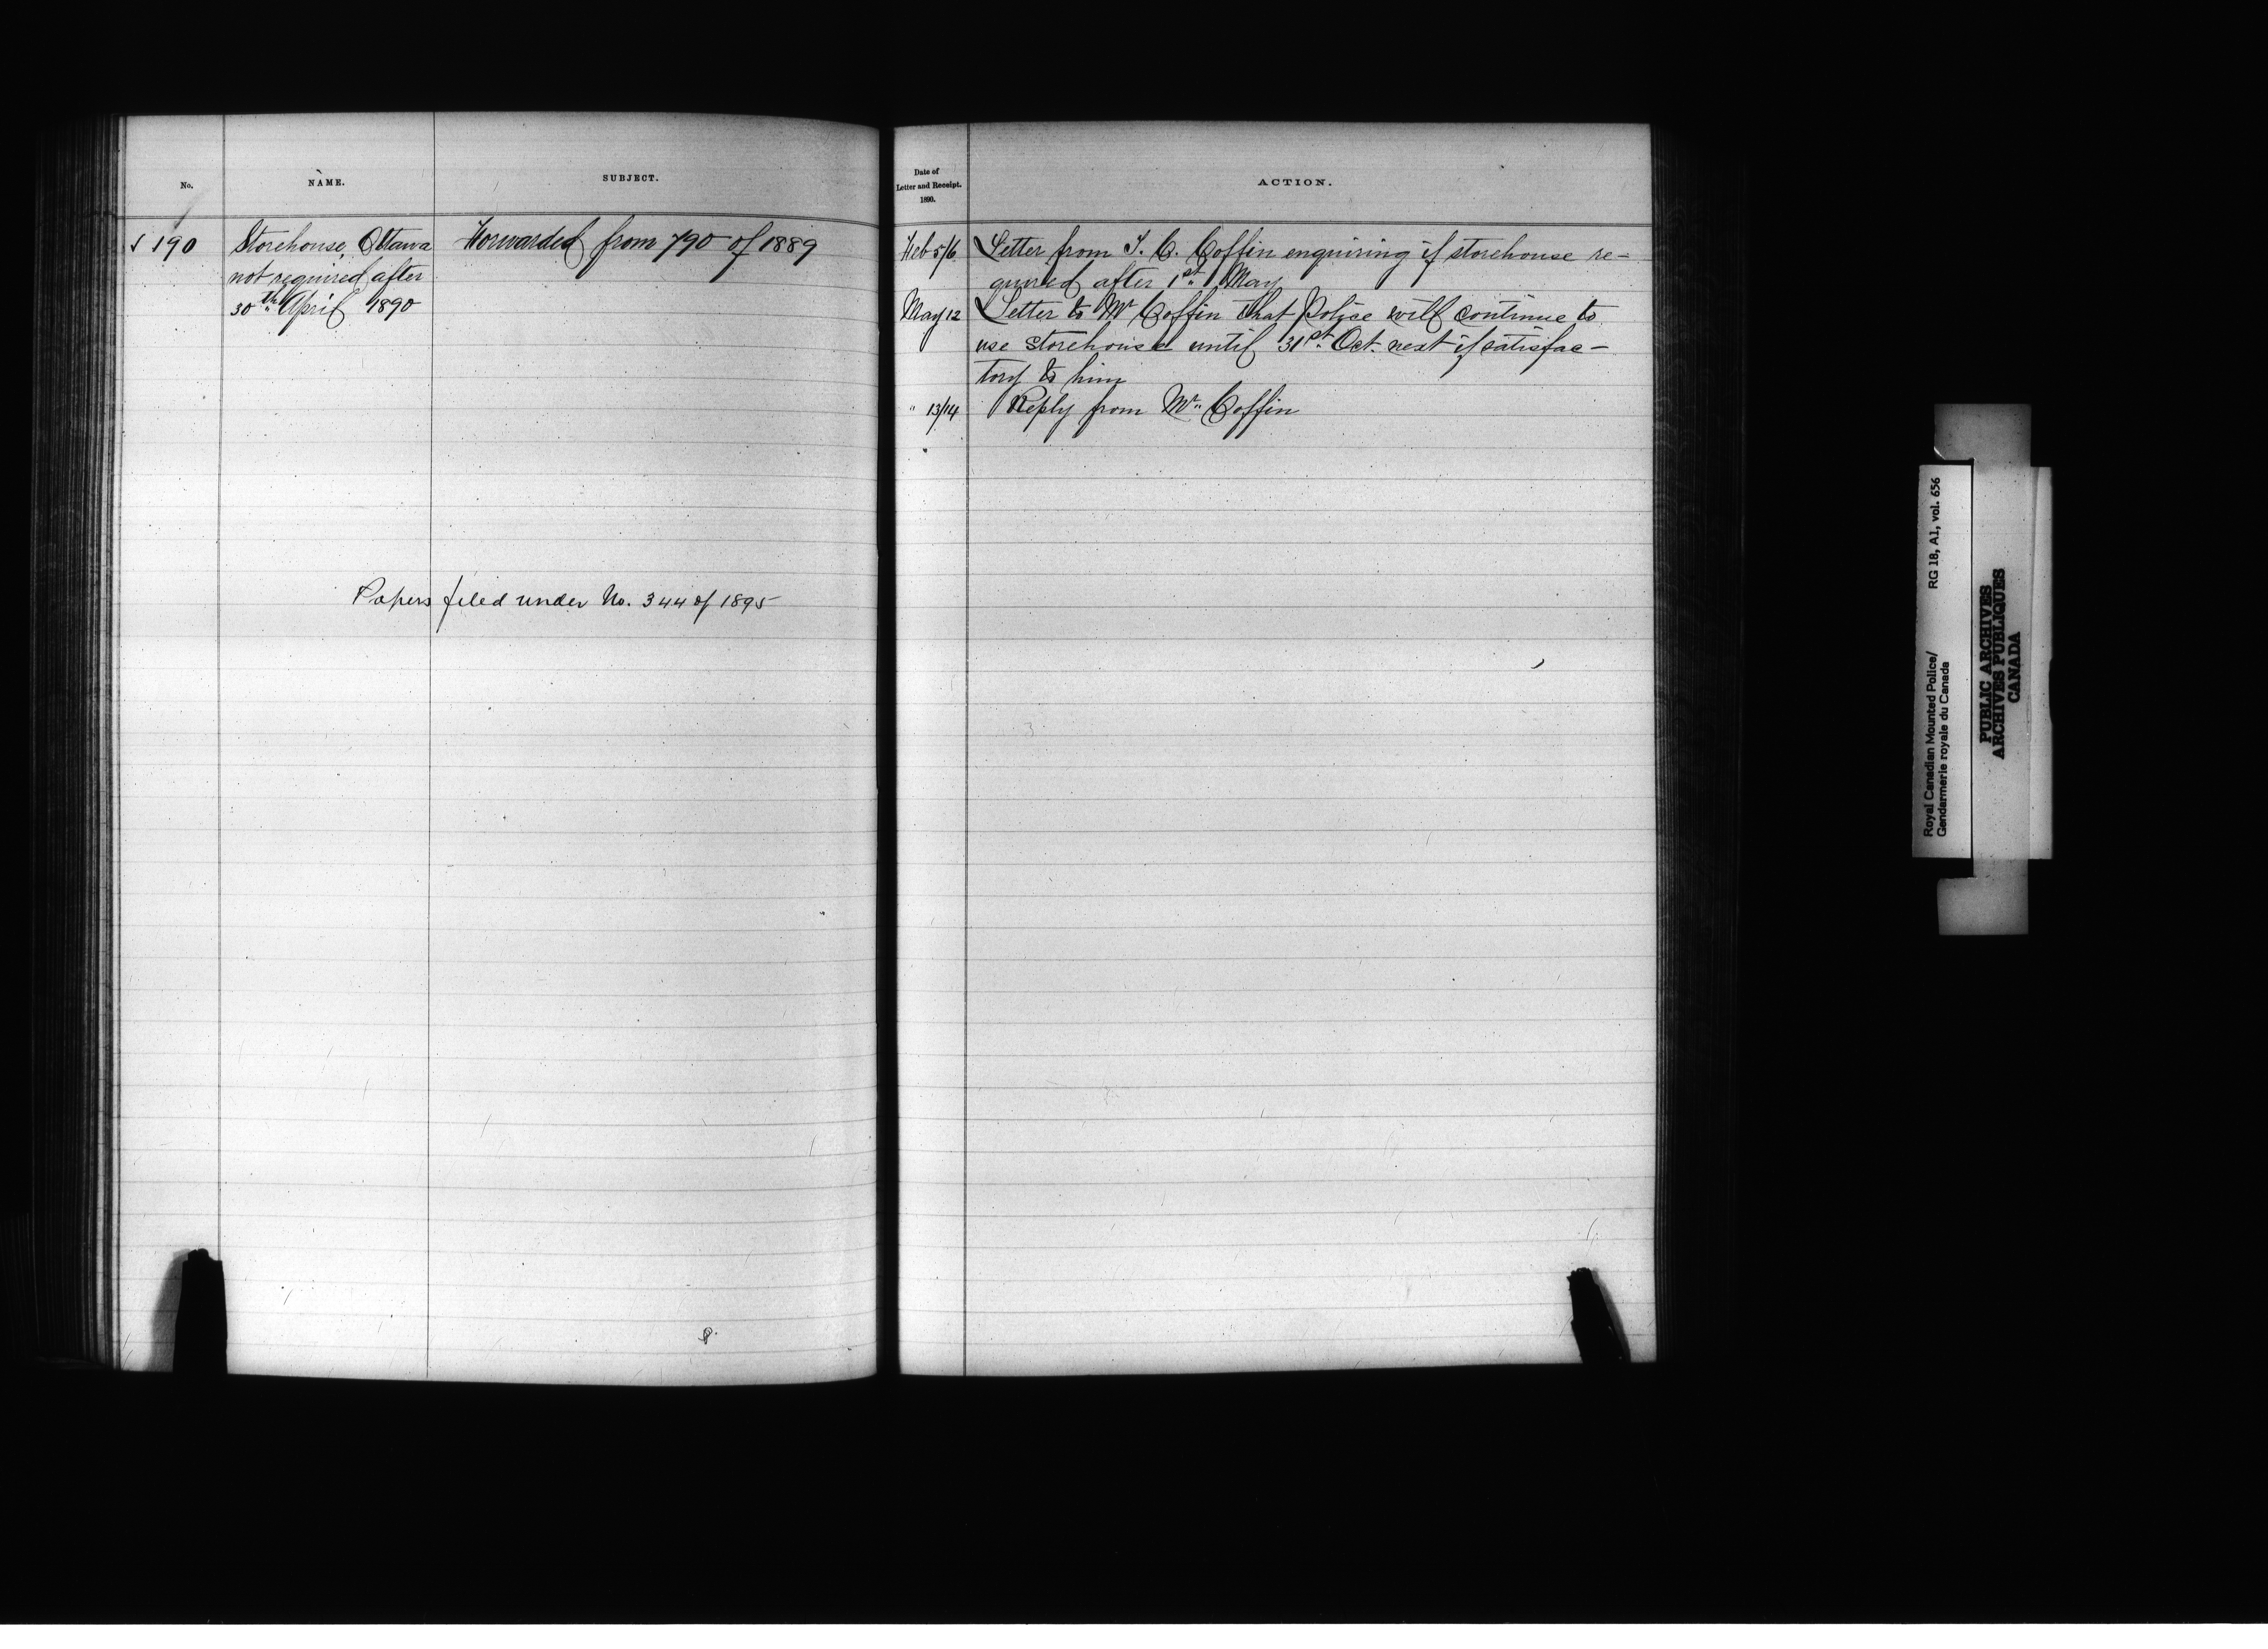 No.
NAME.
SUBJECT.
190
Storehouse, Ottawa
not required after
30th April 1890
Forwarded from 790 of 1889
Papers filed under No. 344 of 1895
Date of
Letter and Receipt.
1890.
ACTION.
Feb 5/6
Letter from T. C. Coffin enquiring if storehouse re-
quired after 1st May
May 12
Letter to Mr Coffin that Police will continue to
use storehouse until 31st Oct. next if satisfac-
tory to him
" 13/14
Reply from Mr. Coffin
Royal Canadian Mounted Police/
Gendarmerie royale du Canada
RG 18, A1, vol. 656
PUBLIC ARCHIVES
ARCHIVES PUBLIQUES
CANADA